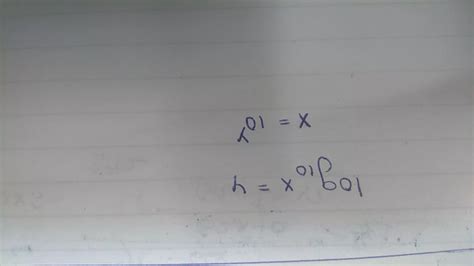 log₁₀x = y
x = 10ʸ